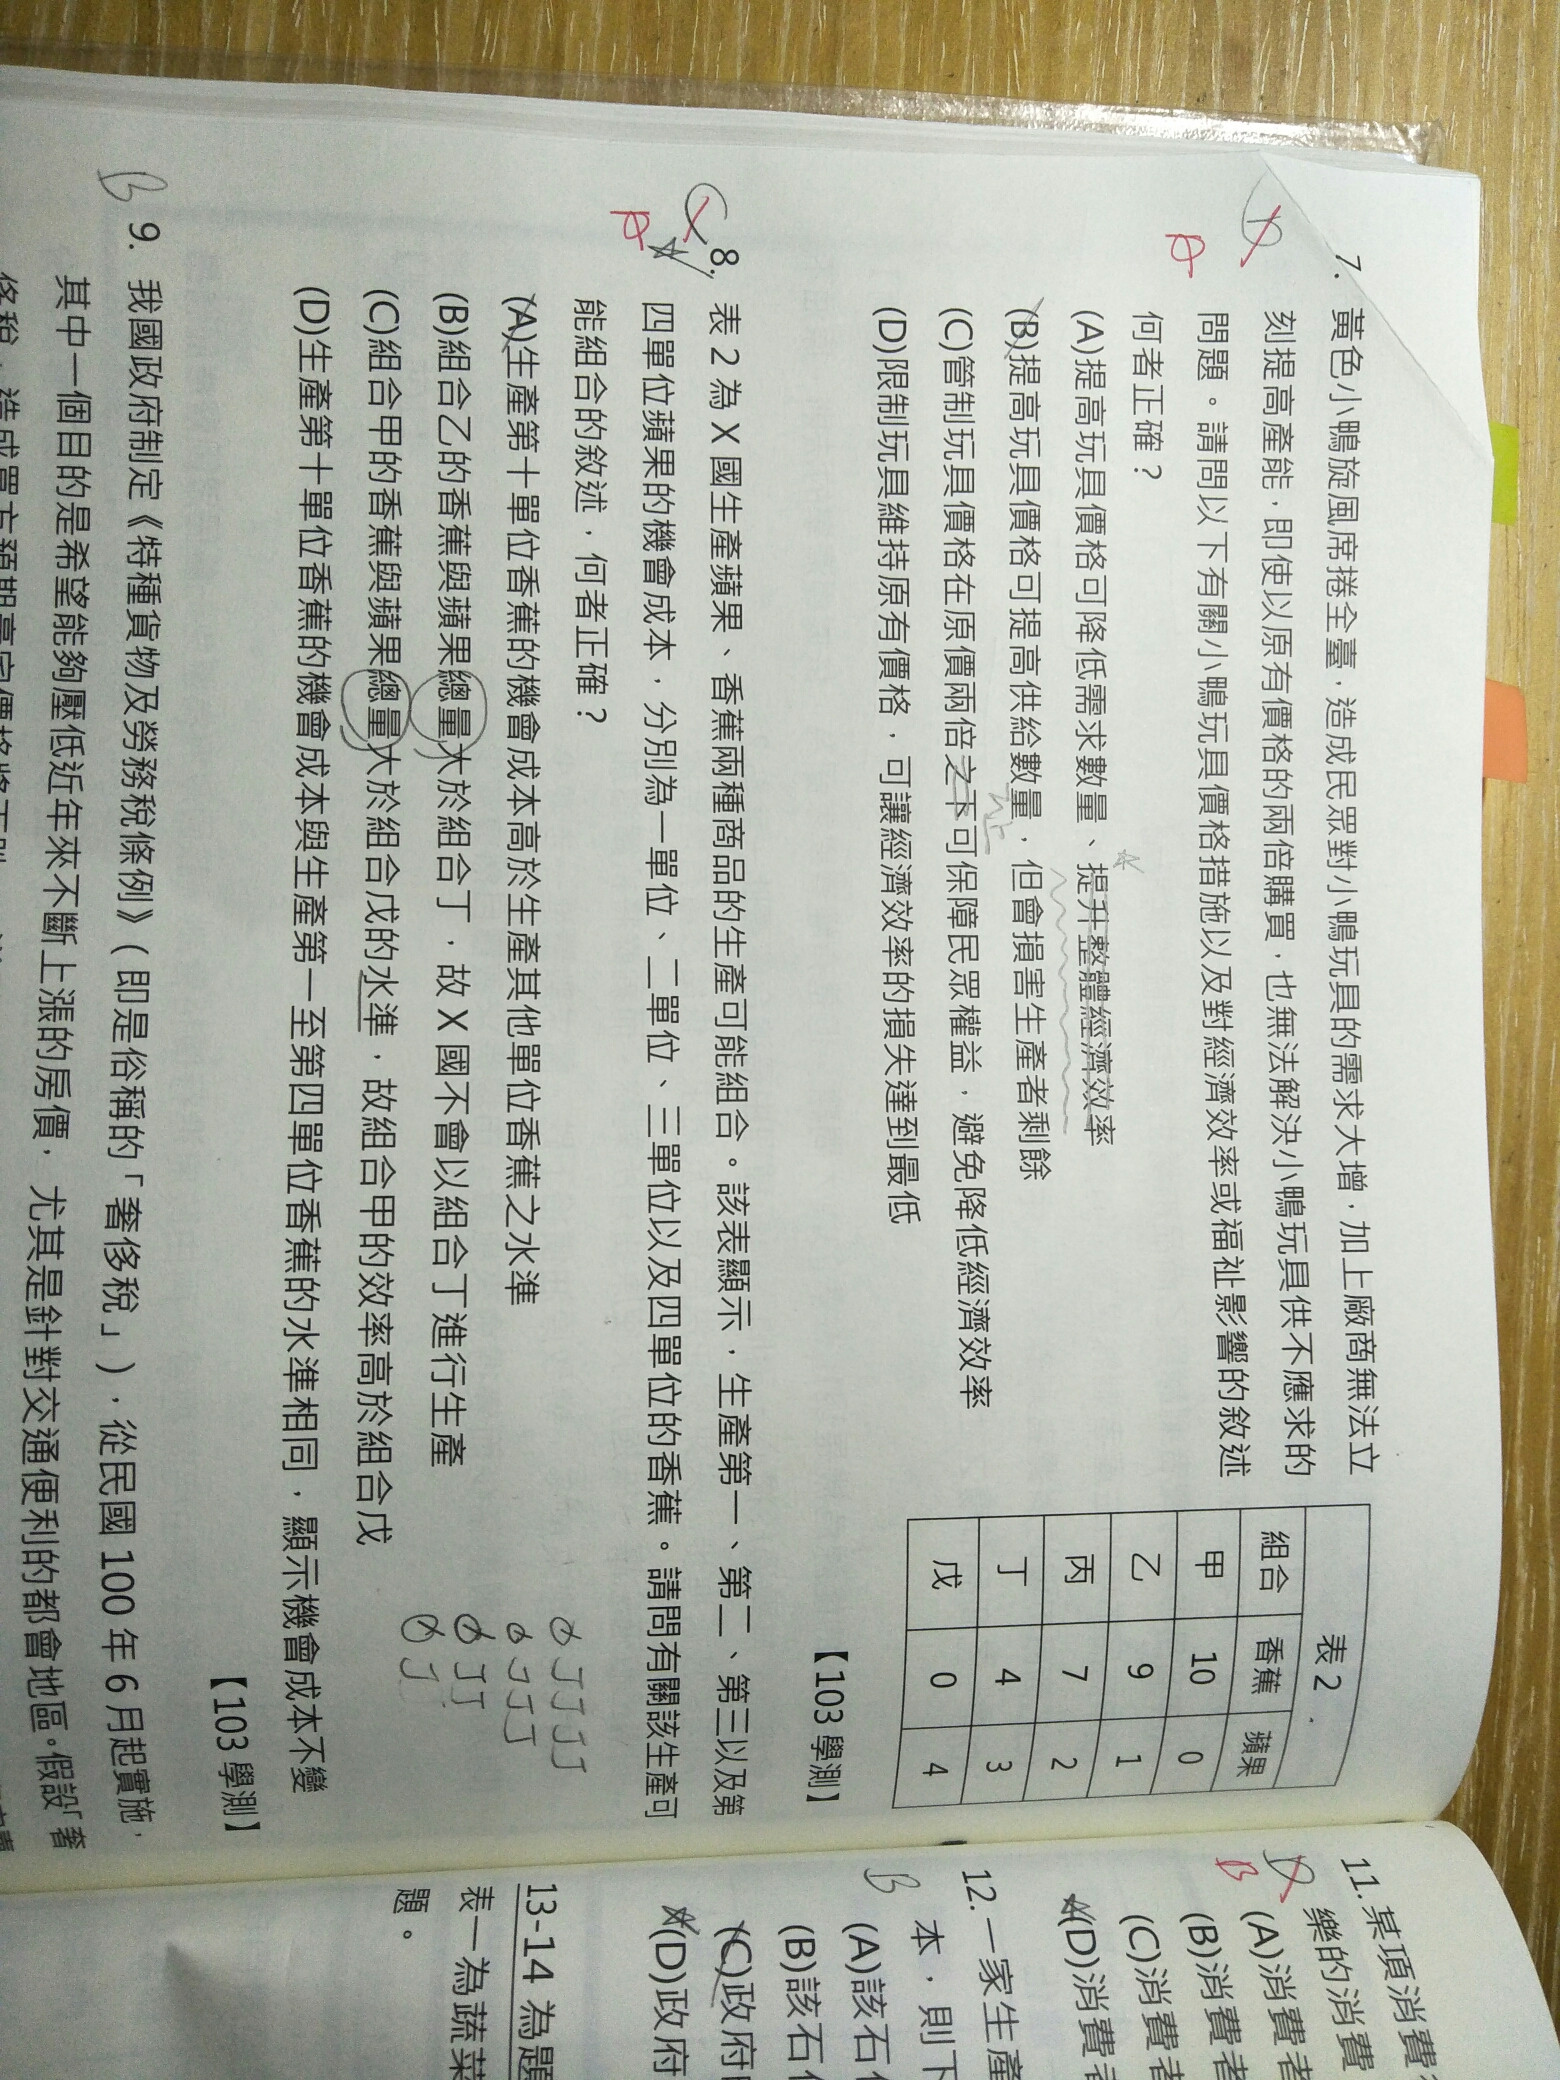 7. 黃色小鴨旋風席捲全臺，造成民眾對小鴨玩具的需求大增，加上廠商無法立
刻提高產能，即使以原有價格的兩倍購買，也無法解決小鴨玩具供不應求的
問題。請問以下有關小鴨玩具價格措施以及對經濟效率或福祉影響的敘述
何者正確？
(A)提高玩具價格可降低需求數量、提升整體經濟效率
(B)提高玩具價格可提高供給數量，但會損害生產者剩餘
(C)管制玩具價格在原價兩倍之下可保障民眾權益，避免降低經濟效率
(D)限制玩具維持原有價格，可讓經濟效率的損失達到最低
【103 學測】
表 2
組合 香蕉 蘋果
甲 10 0
乙 9 1
丙 7 2
丁 4 3
戊 0 4
8. 表 2 為 X 國生產蘋果、香蕉兩種商品的生產可能組合。該表顯示，生產第一、第二、第三以及第
四單位蘋果的機會成本，分別為一單位、二單位、三單位以及四單位的香蕉。請問有關該生產可
能組合的敘述，何者正確？
(A)生產第十單位香蕉的機會成本高於生產其他單位香蕉之水準
(B)組合乙的香蕉與蘋果總量大於組合丁，故 X 國不會以組合丁進行生產
(C)組合甲的香蕉與蘋果總量大於組合戊的水準，故組合甲的效率高於組合戊
(D)生產第十單位香蕉的機會成本與生產第一至第四單位香蕉的水準相同，顯示機會成本不變
【103 學測】
B
9. 我國政府制定《特種貨物及勞務稅條例》（即是俗稱的「奢侈稅」），從民國 100 年 6 月起實施，
其中一個目的是希望能夠壓低近年來不斷上漲的房價，尤其是針對交通便利的都會地區。假設「奢
11.某項消費
樂的消費
(A)消費者
(B)消費者
(C)消費者
(D)消費者
B
12.一家生產
本，則下
(A)該石
(B)該石
(C)政府
(D)政府
13-14 為題
表一為蔬菜
題。